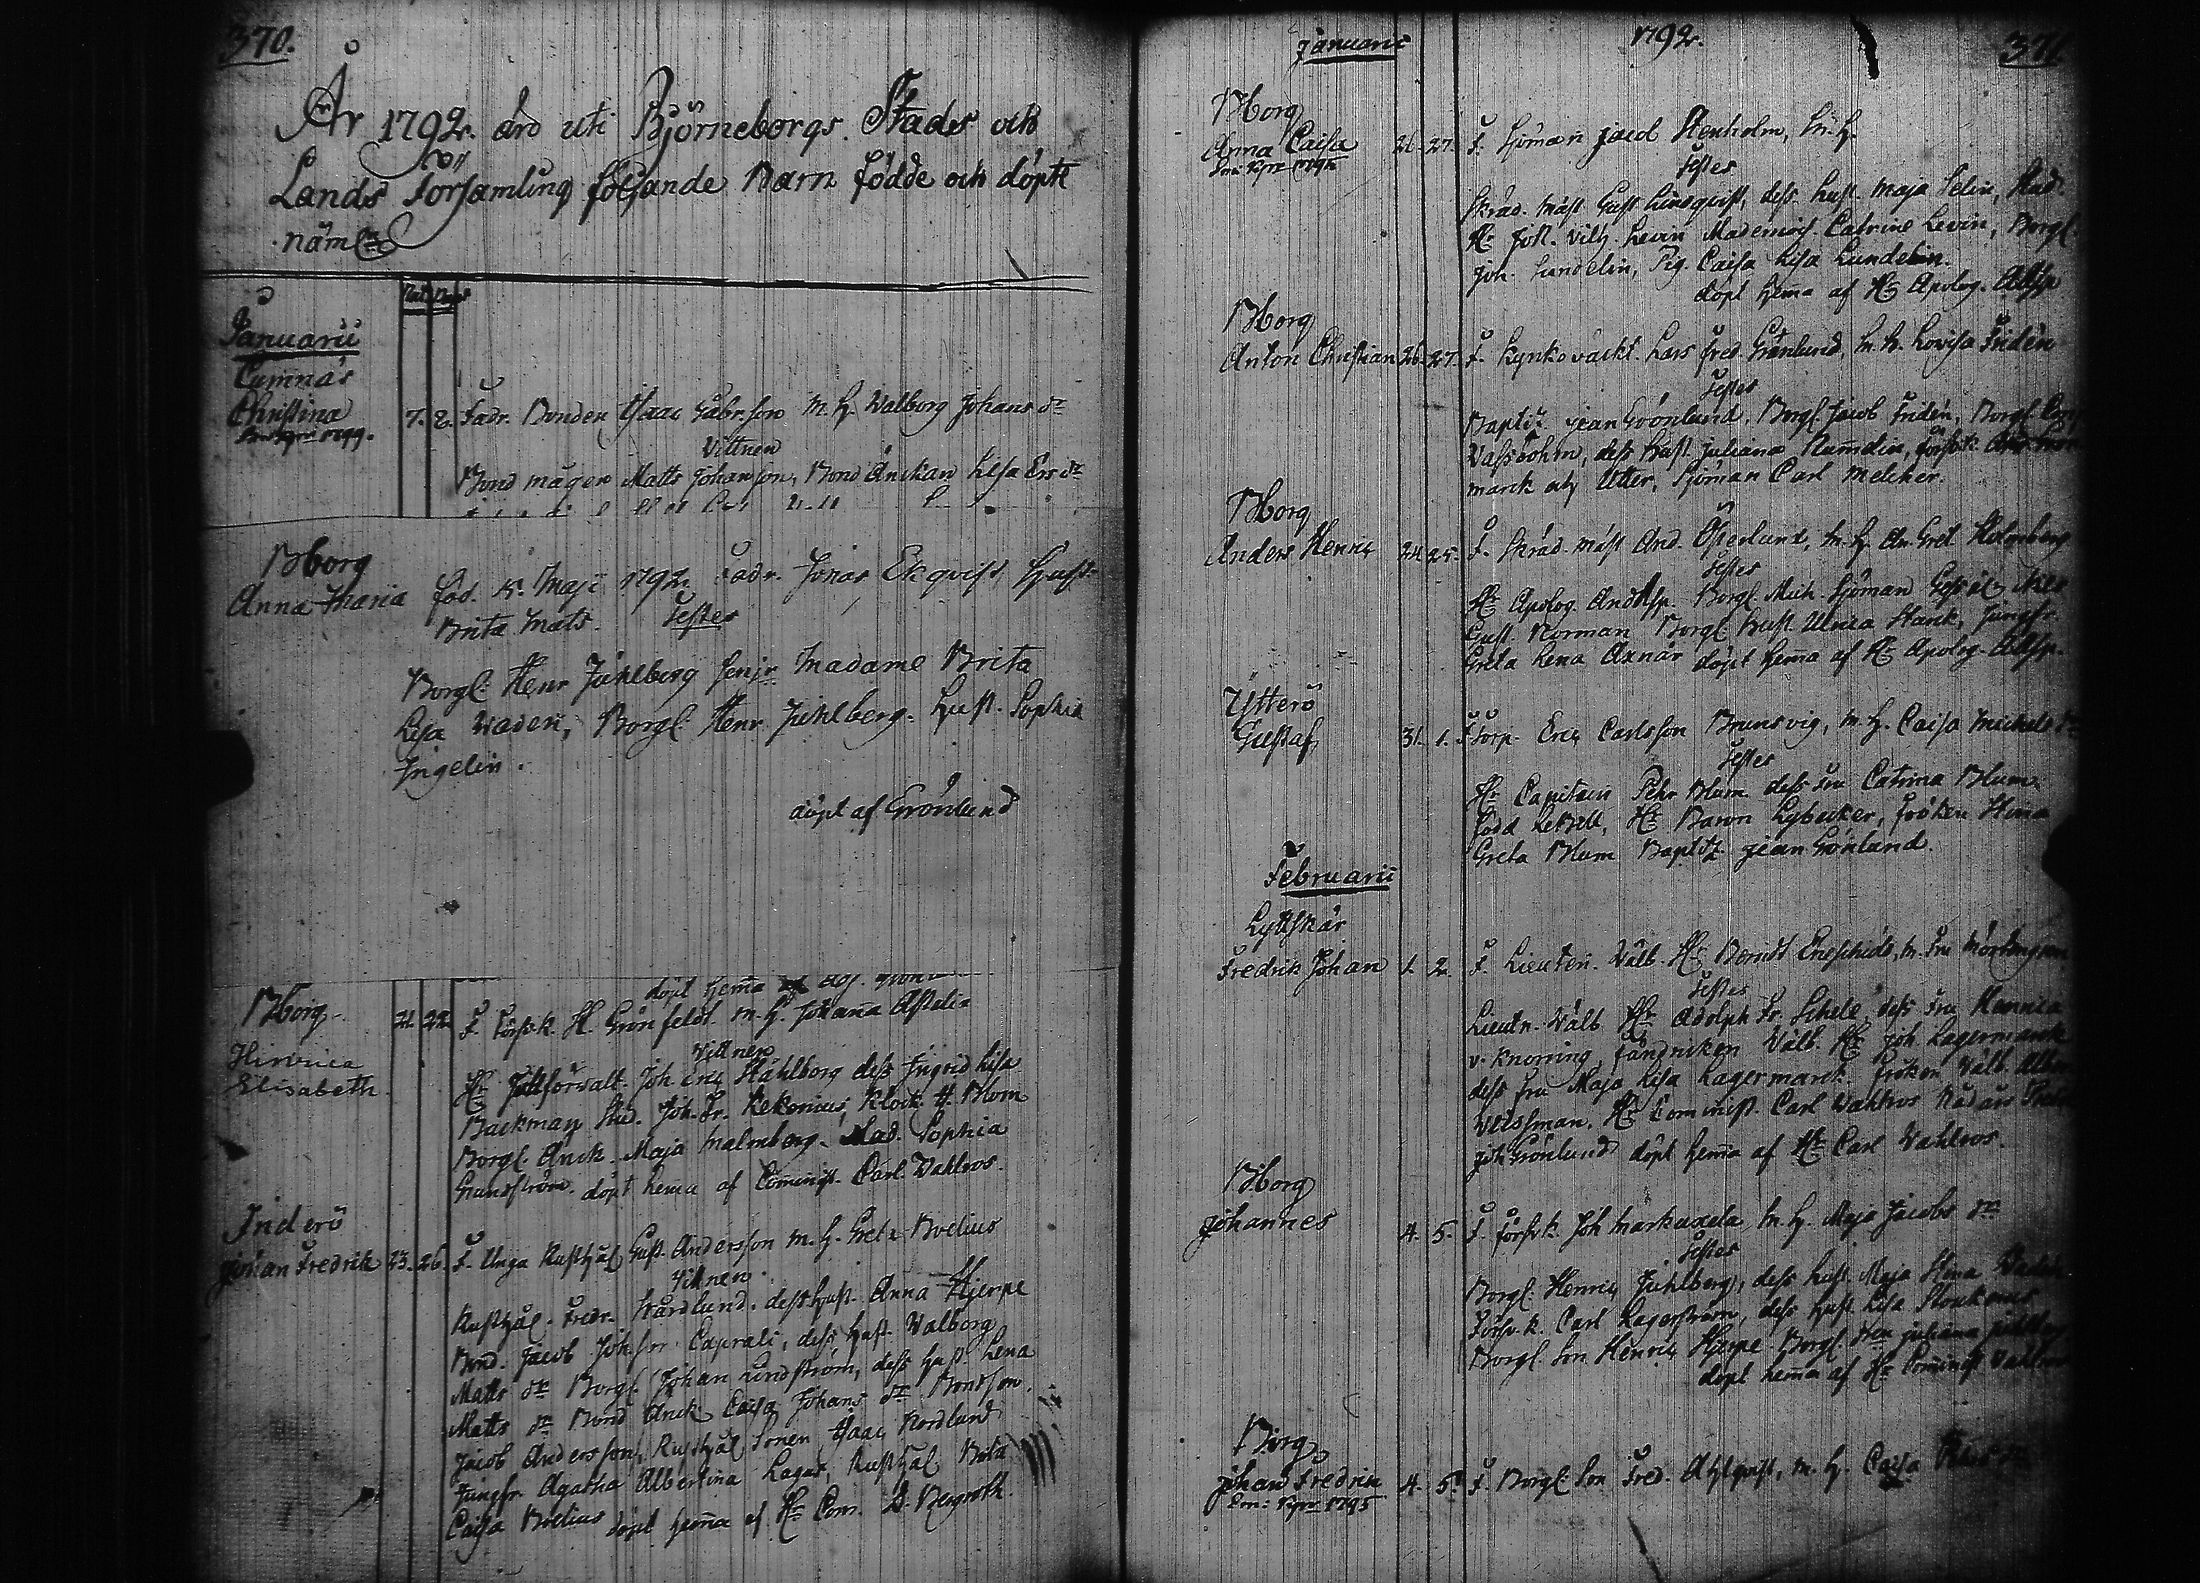 370.
År 1792. äro uti Björneborgs Stads och
Lands Församling följande Barn födde och döpte
näml
Januarii
Cumnäs
Christina 7. 8. Fadr. Bonden Isaac Gabr.son m. h. Walborg Johans dr
1799.
Vittnen
Bond mågen Matts Johansson, Bond Änckan Lisa Ers dr
BBorg
Anna Maria föd. 5. Maji 1792. Fadr. Jonas Ekqvist, Hust.
Brita Mats. Testes
Borgl. Henr Juhlberg senjr Madame Brita
Lisa Wadén, Borgl. Henr. Juhlberg. Hust. Sophia
Ingelin.
döpt af Grönlund
döpt hema
BBorg 21. 22. F. Försk. H. Grönfeldt m. h. Johanna Astelia
Hinrica
Elisabeth
Vittnen
Hr Tullförvalt. Joh. Eric Ståhlborg dess Ingrid Lisa
Backman, Stud. Joh. Fr. Lekenius, Klock. H. Blom
Borgl. Änck. Maja Malmberg. Mad. Sophia
Grundström. döpt hema af Cominist. Carl Wahlros.
Inderö
Johan Fredrik 23. 26. F. Unga Rusthål. Gust. Andersson m. h. Greta Boelius
Vittnen.
Rusthål. Fredr. Nordlund, dess hust. Anna Hjerpe
Bond. Jacob Johsson Caprali, dess hust. Walborg
Matts dr Borgl. Johan Lindström, dess hust. Lena
Matts dr Bond Änck. Caisa Johans dr Bondson.
Jacob Andersson, Rusthål. Sonen Isaac Nordlund
Jungfr. Agatha Albertina Lagus, Rusthål. Brita
Caisa Boelius döpt hema af Hr Com. G. Bergroth.
Januarii 1792. 371.
BBorg
Anna Caisa 26. 27. F. Sjöman Jacob Stenholm, m. h.
Testes
Skräd. mäst. Gust Lindqvist, dess hust. Maja Selin, Stud.
Hr Joh. Vilh. Levin Mademois. Catrine Levin, Borgl.
Joh. Lundelin, Pig. Caisa Lisa Lundelin.
döpt hema af Hr Apolog. Alfsp
BBorg
Anton Christian 26. 27. F. Lars Fred. Grönlund, m. h. Lovisa Fridén
Testes
Baptiz. Jean Grönlund. Borgl. Jacob Fridén, Borgl.
Vassbohm, dess hust. Juliana Rumdin,
marck och Utter, Sjöman Carl Melcher.
BBorg
Anders Henric 24. 25. F. Skräd. mäst. And. Österlund, m. h. An. Gret. Holmberg
Testes
Hr Apolog. And. Alfsp. Borgl. Mich. Sjöman
Gust. Norman Borgl. hust. Ulrica Stark, Jungfr.
Greta Lena Axnär döpt hema af Hr Apolog. Alfsp.
Ytterö
Gustaf 31. 1. F. Torp. Eric Carlsson Brunsvig, m. h. Caisa Michels dr
Testes
Hr Capitain Pehr Blum dess Fru Catrina Blum
född Hr Baron Lybecker, Fröken Stina
Greta Blum Baptiz. Jean Grönlund.
Februarii
Lyttskär
Fredrik Johan 1. 2. F. Lieuten. Välb. Hr Berndt Enesköld, m. Fru
Testes
Lieutn. Välb. Hr Adolph Fr. Schele, dess Fru Henrica
v. Knorring, Fändricken Välb. Hr Joh Lagermarck
dess Fru Maja Lisa Lagermarck. Fröken Välb.
Hr Cominist. Carl Wahlros
Joh Grönlund döpt hema af Hr Carl Wahlros.
BBorg
Johannes 4. 5. F. Försk. Joh Markuxela m. h. Maja Jacobs dr
Testes
Borgl. Henric Juhlberg, dess hust. Maja Stina
Försk. Carl Lagerström, dess hust. Lisa
Borgl. Son Henric Hjerpe Borgl. Juliana
döpt hema af Hr Cominist Wahlros
BBorg
Johan Fredrik 4. 5. F. Borgl. Son Fred. Ahlqvist, m. h. Caisa
1795